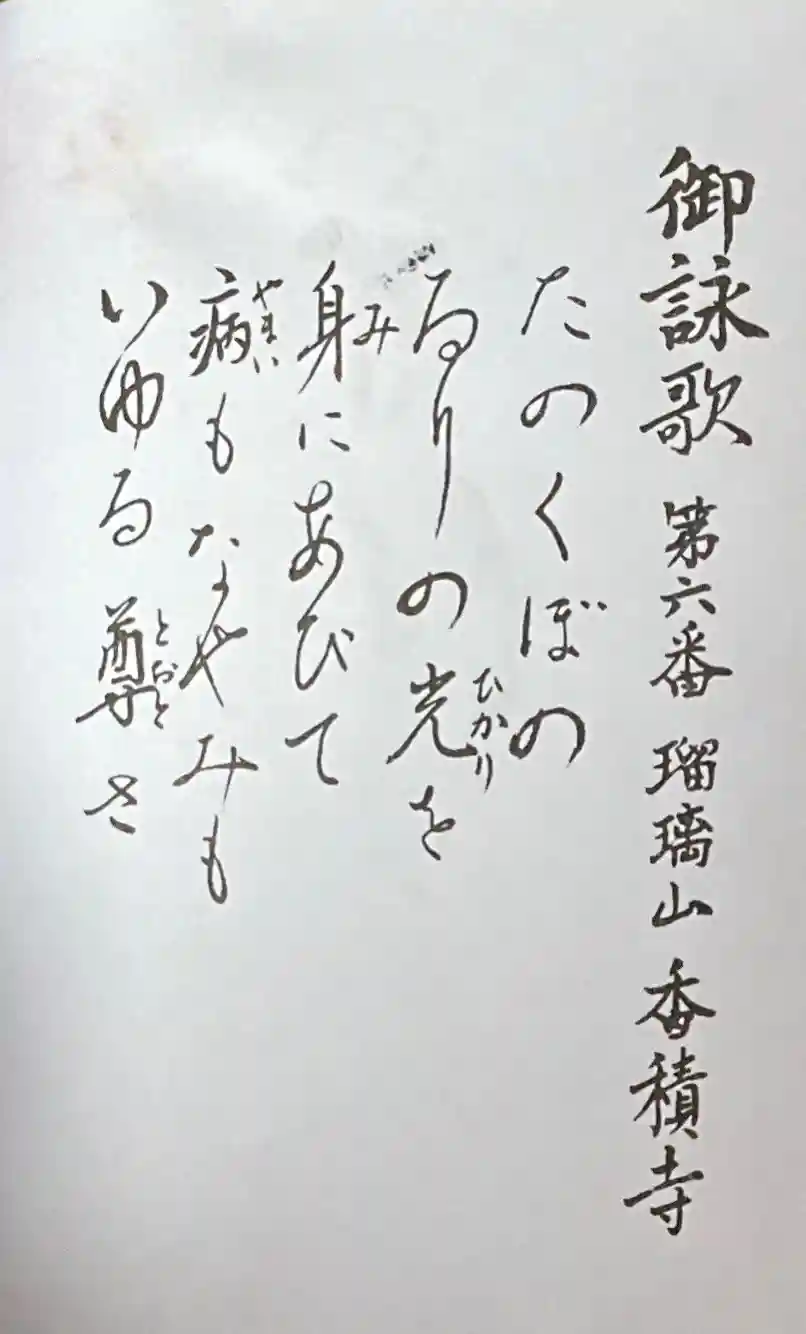 御詠歌 第六番 瑠璃山 香積寺
たのくぼの
るりの光を
ひかり
身にあびて
み
病もなやみも
やまい
いゆる尊さ
とおと